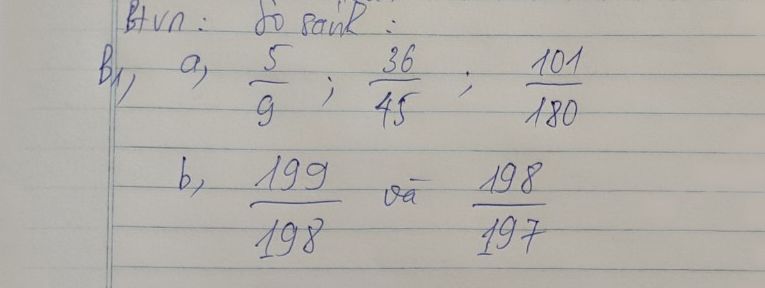 Btvn: So sánh:
B1, a, 5/9 ; 36/45 ; 101/180
b, 199/198 và 198/197